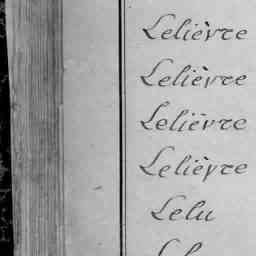 Lelièvre
Lelièvre
Lelièvre
Lelièvre
Lelu